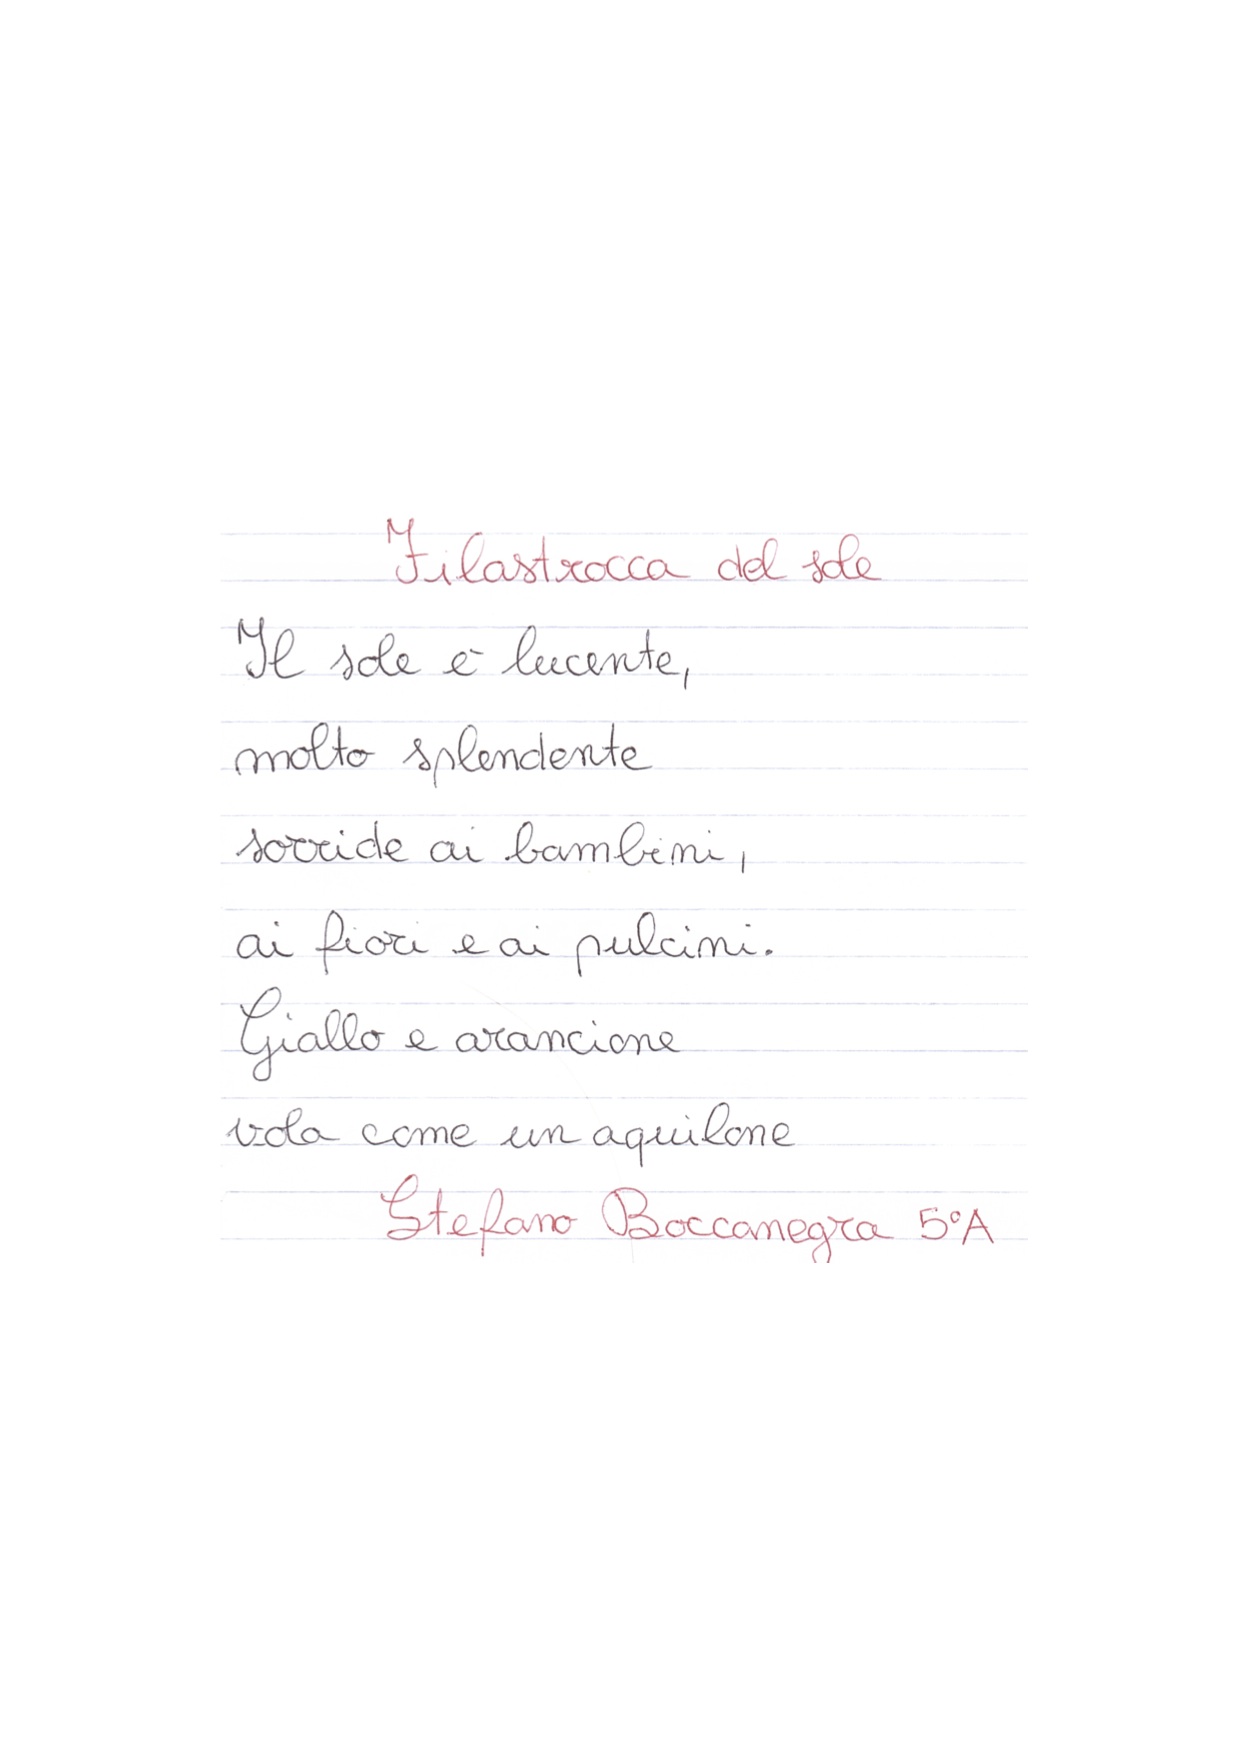 Filastrocca del sole
Il sole è lucente,
molto splendente
sorride ai bambini,
ai fiori e ai pulcini.
Giallo e arancione
vola come un aquilone
Stefano Boccanegra 5°A